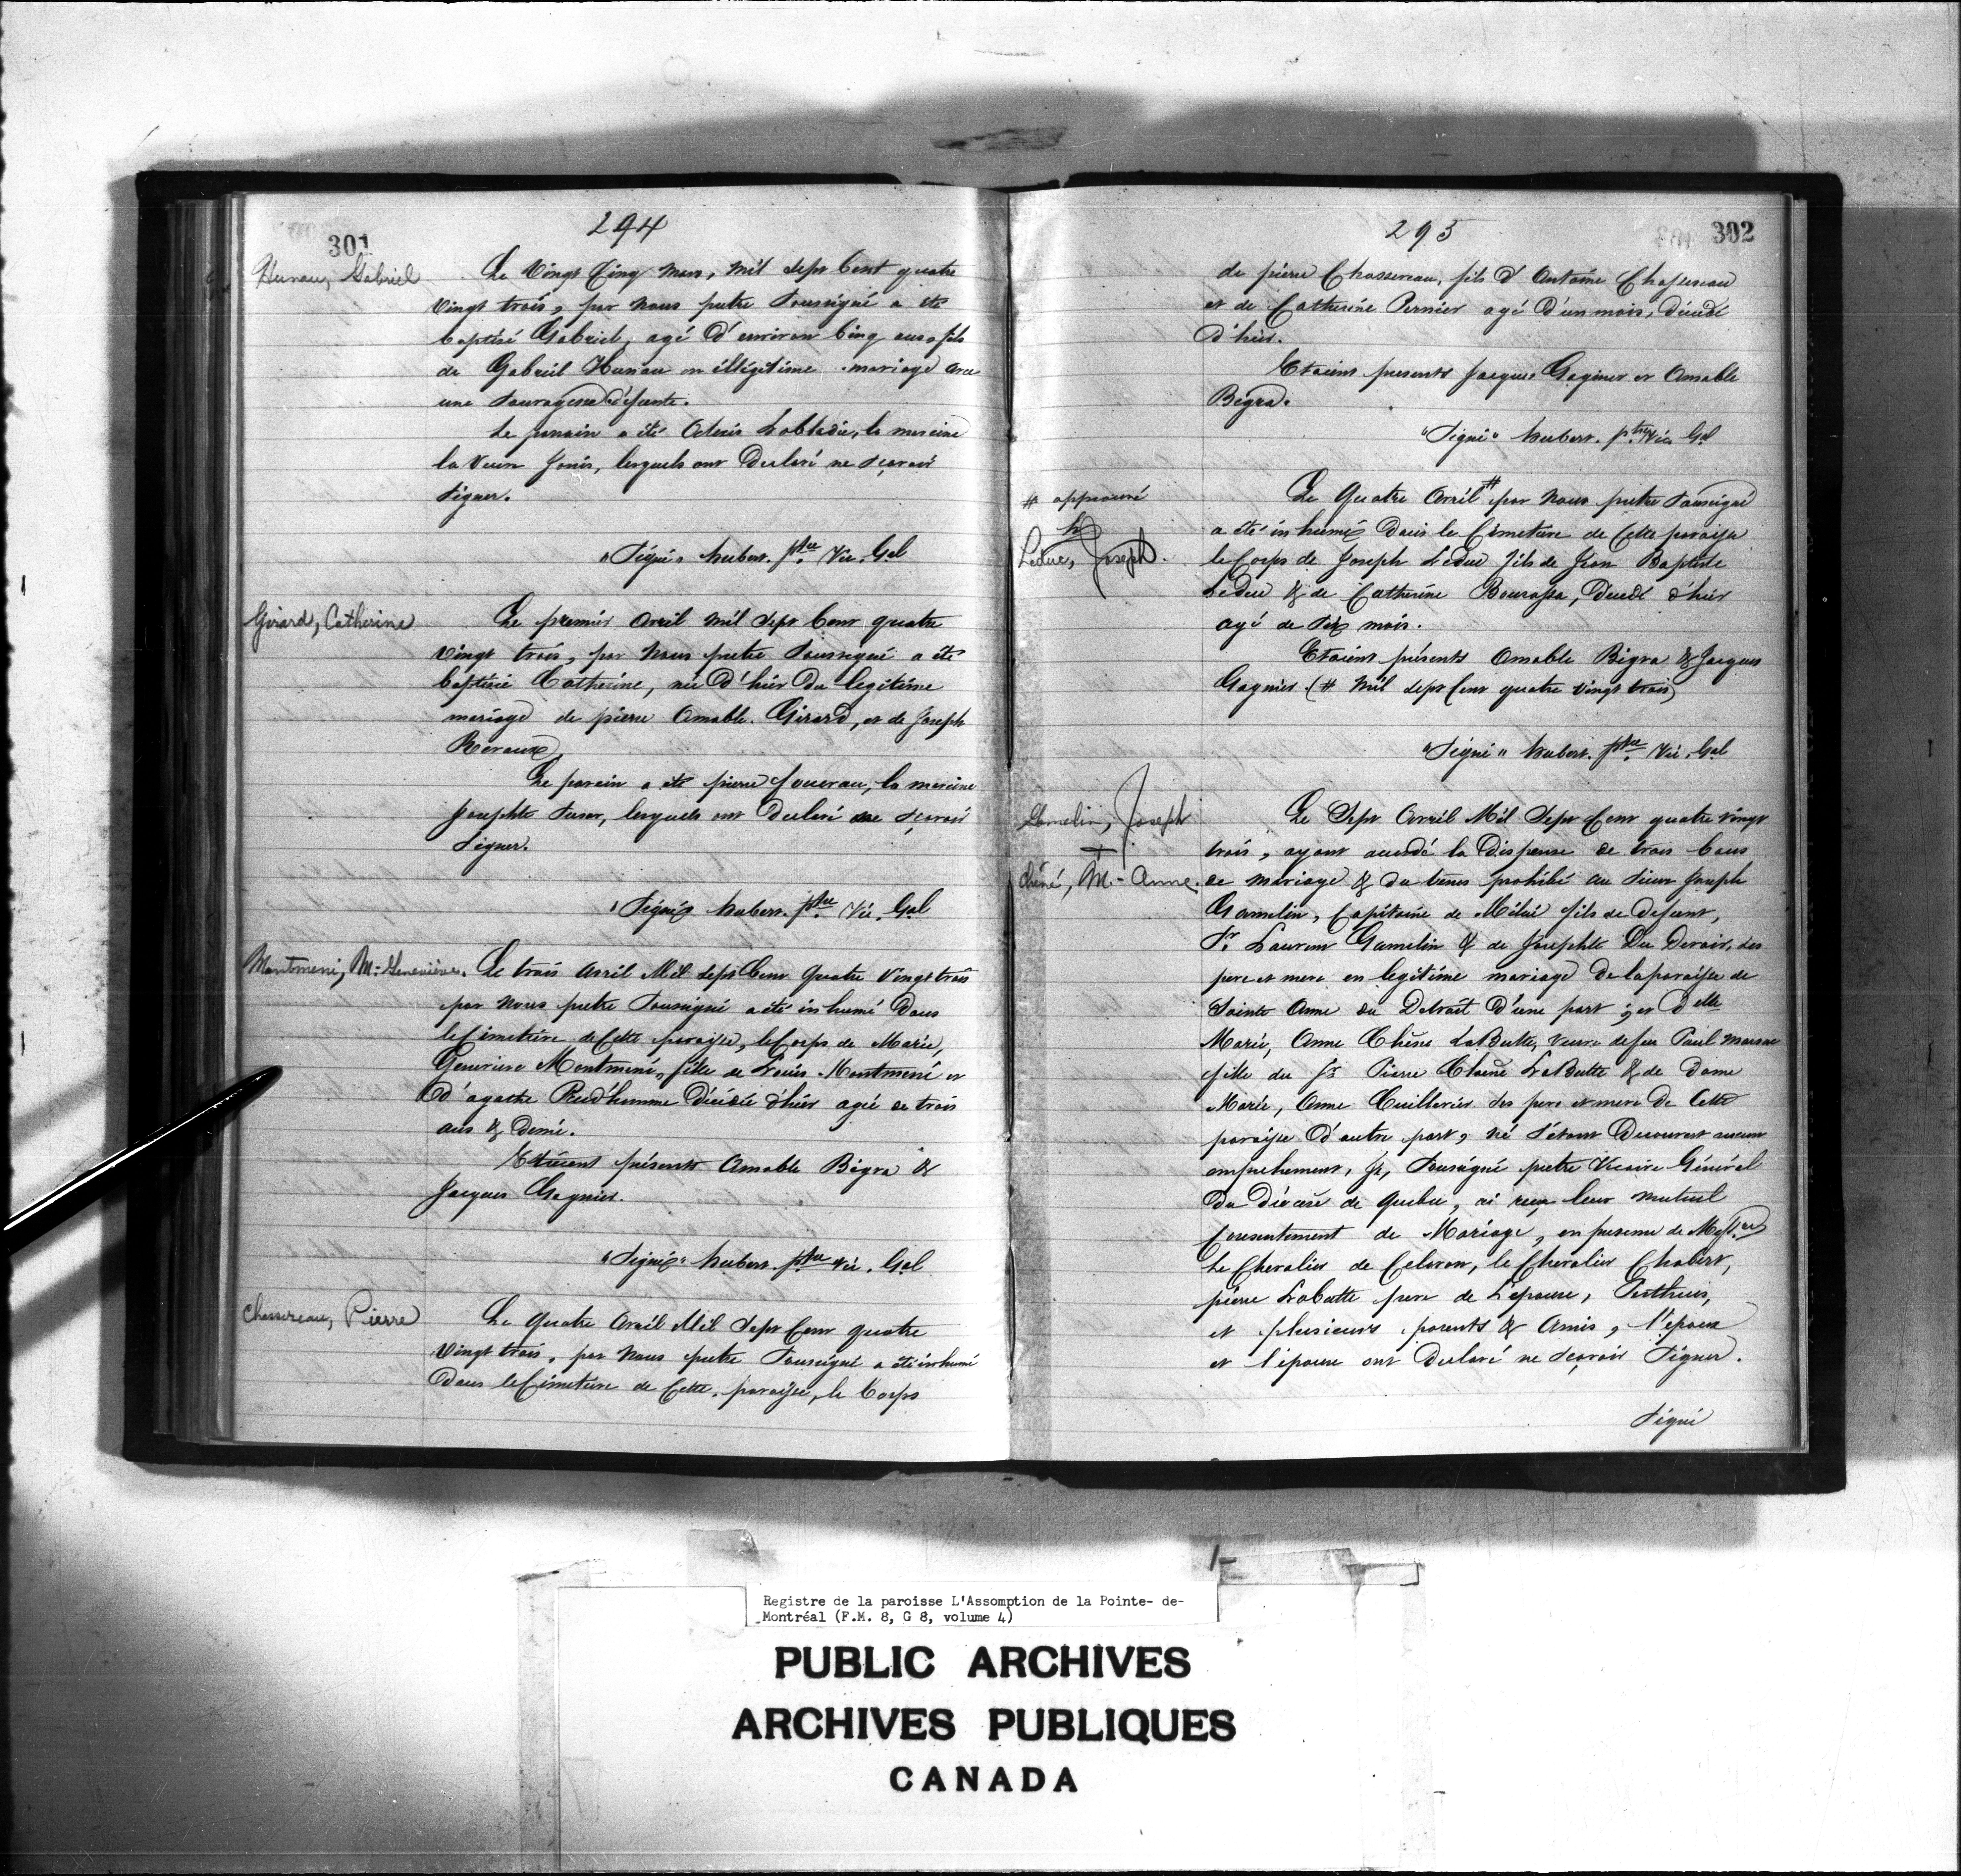 294
301
Hunau, Gabriel
Le Vingt Cinq Mars, Mil Sept Cent quatre
Vingt trois, par Nous pretre Soussigné a été
baptisé Gabriel, agé d'environ Cinq ans, fils
de Gabriel Hunau en illégitime mariage avec
une Sauvagesse défunte.
Le parrain a été Alexis Labladie, la mareine
la Veuve Janis, lesquels ont Declaré ne Sçavoir
Signer.
"Signé" hubert. ptre Vic. Gal
Girard, Catherine
Le premier Avril Mil Sept Cent quatre
Vingt trois, par Nous pretre Soussigné a été
baptisée Catherine, née d'hier Du legitime
mariage de pierre Amable Girard, et de Joseph
Reveaux.
Le parein a été pierre, la mareine
Josephte, lesquels ont Declaré ne Sçavoir
Signer.
"Signé" hubert. ptre Vic. Gal
Montmeni, M.-Geneviève.
Le trois Avril Mil Sept Cent Quatre Vingt trois
par Nous pretre Soussigné a été inhumé Dans
le Cimetiere de Cette paroisse, le Corps de Marie,
Genevieve Montmeni, fille de Louis Montmeni et
D'agathe Prud'homme Décédée d'hier agée de trois
ans & Demi.
Etaient présents Amable Bigra &
Jacques Gagnier.
"Signé" hubert. ptre Vic. Gal
Chassereau, Pierre
Le Quatre Avril Mil Sept Cent quatre
Vingt trois, par Nous pretre Soussigné a été inhumé
Dans le Cimetiere de Cette paroisse, le Corps
295
302
de pierre Chassereau, fils d'Antoine Chassereau
et de Catherine Pernier agé D'un mois, décédé
D'hier.
Etaient presents Jacques Gagnier et Amable
Begra.
"Signé" hubert. ptre Vic Gal
# approuvé
h
Leduc, Joseph.
Le Quatre Avril # par Nous pretre Soussigné
a été inhumé Dans le Cimetiere de Cette paroisse
le Corps de Joseph Leduc fils de Jean Baptiste
Leduc & de Catherine Bourassa, Decedé d'hier
agé de Six mois.
Etaient présents Amable Bigra & Jacques
Gagnier. (# Mil Sept Cent quatre Vingt trois)
"Signé" hubert. ptre Vic. Gal
Gamelin, Joseph
+
chêné, M.-Anne.
Le Sept Avril Mil Sept Cent quatre vingt
trois, ayant accordé la Dispense de trois bans
de mariage & du tems prohibé au Sieur Joseph
Gamelin, Capitaine de Milice fils de defunt,
Sr. Laurent Gamelin & de Josephte Du Devoir, des
pere et mere en legitime mariage De la paroisse de
Sainte Anne du Detroit D'une part; et Delle
Marie, Anne Chêne LaButte, veuve de feu Paul Marsac
fille du Sr. Pierre Chêne LaButte & de Dame
Marie, Anne Cuillerier des pere et mere De Cette
paroisse D'autre part, né S'étant Decouvert aucun
empechement, Je, Soussigné pretre Vicaire Général
Du Diocese de quebec, ai reçu leur mutuel
Consentement de Mariage, en presence de Messrs
Le Chevalier de Celoron, le Chevalier Chabert,
pierre Labutte pere de L'epouse, Perthuis,
et plusieurs parents & Amis, l'epoux
et l'épouse ont Declaré ne Sçavoir Signer.
Signé
Registre de la paroisse L'Assomption de la Pointe- de-
Montréal (F.M. 8, G 8, volume 4)
PUBLIC ARCHIVES
ARCHIVES PUBLIQUES
CANADA